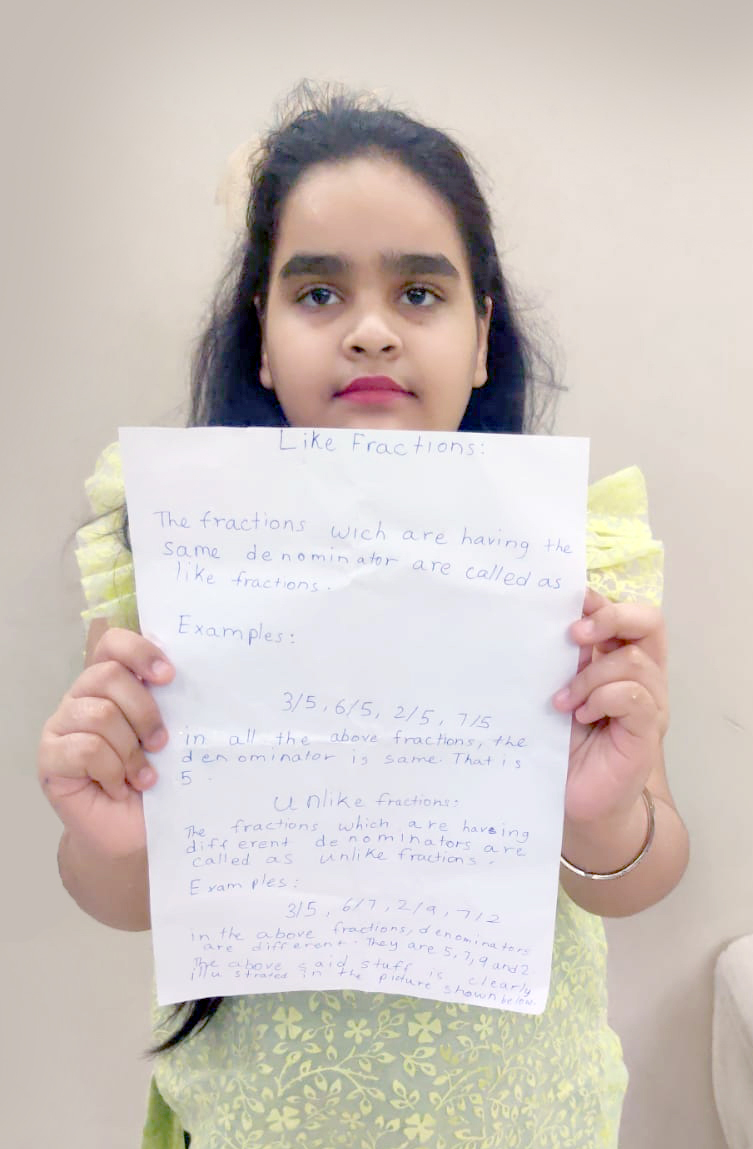 Like Fractions:
The fractions wich are having the
same denominator are called as
like fractions.
Examples:
3/5, 6/5, 2/5, 7/5
in all the above fractions, the
denominator is same. That is
5.
Unlike fractions:
The fractions which are having
different denominators are
called as unlike fractions.
Examples:
3/5, 6/7, 2/9, 7/2
in the above fractions, denominators
are different. They are 5, 7, 9 and 2.
The above said stuff is clearly
illustrated in the picture shown below.